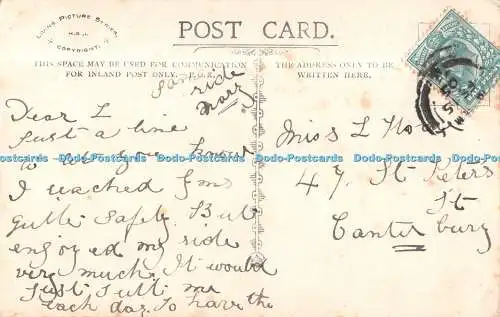 LIVING PICTURE SERIES.
H.G.L.
COPYRIGHT.
POST CARD.
THIS SPACE MAY BE USED FOR COMMUNICATION
FOR INLAND POST ONLY.
THE ADDRESS ONLY TO BE
WRITTEN HERE.
same
ride
Mary
Dear L
Just a line
to let you know
I reached
quite safely. But
enjoyed my ride
very much. It would
just suit me
each day. To have the
Miss L
47 St Peters
St
Canterbury
Dodo-Postcards Dodo-Postcards Dodo-Postcards Dodo-Postcards Dodo-Postcards Dodo-Postcards